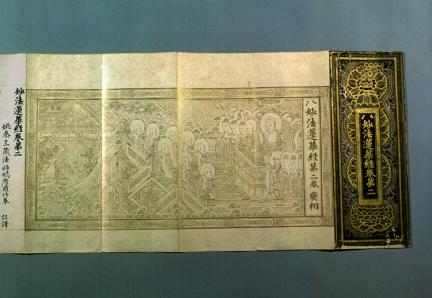 妙法蓮華經卷第二
妙法蓮華經第二卷 變相
妙法蓮華經卷第二
姚秦三藏法師鳩摩羅什奉 詔譯